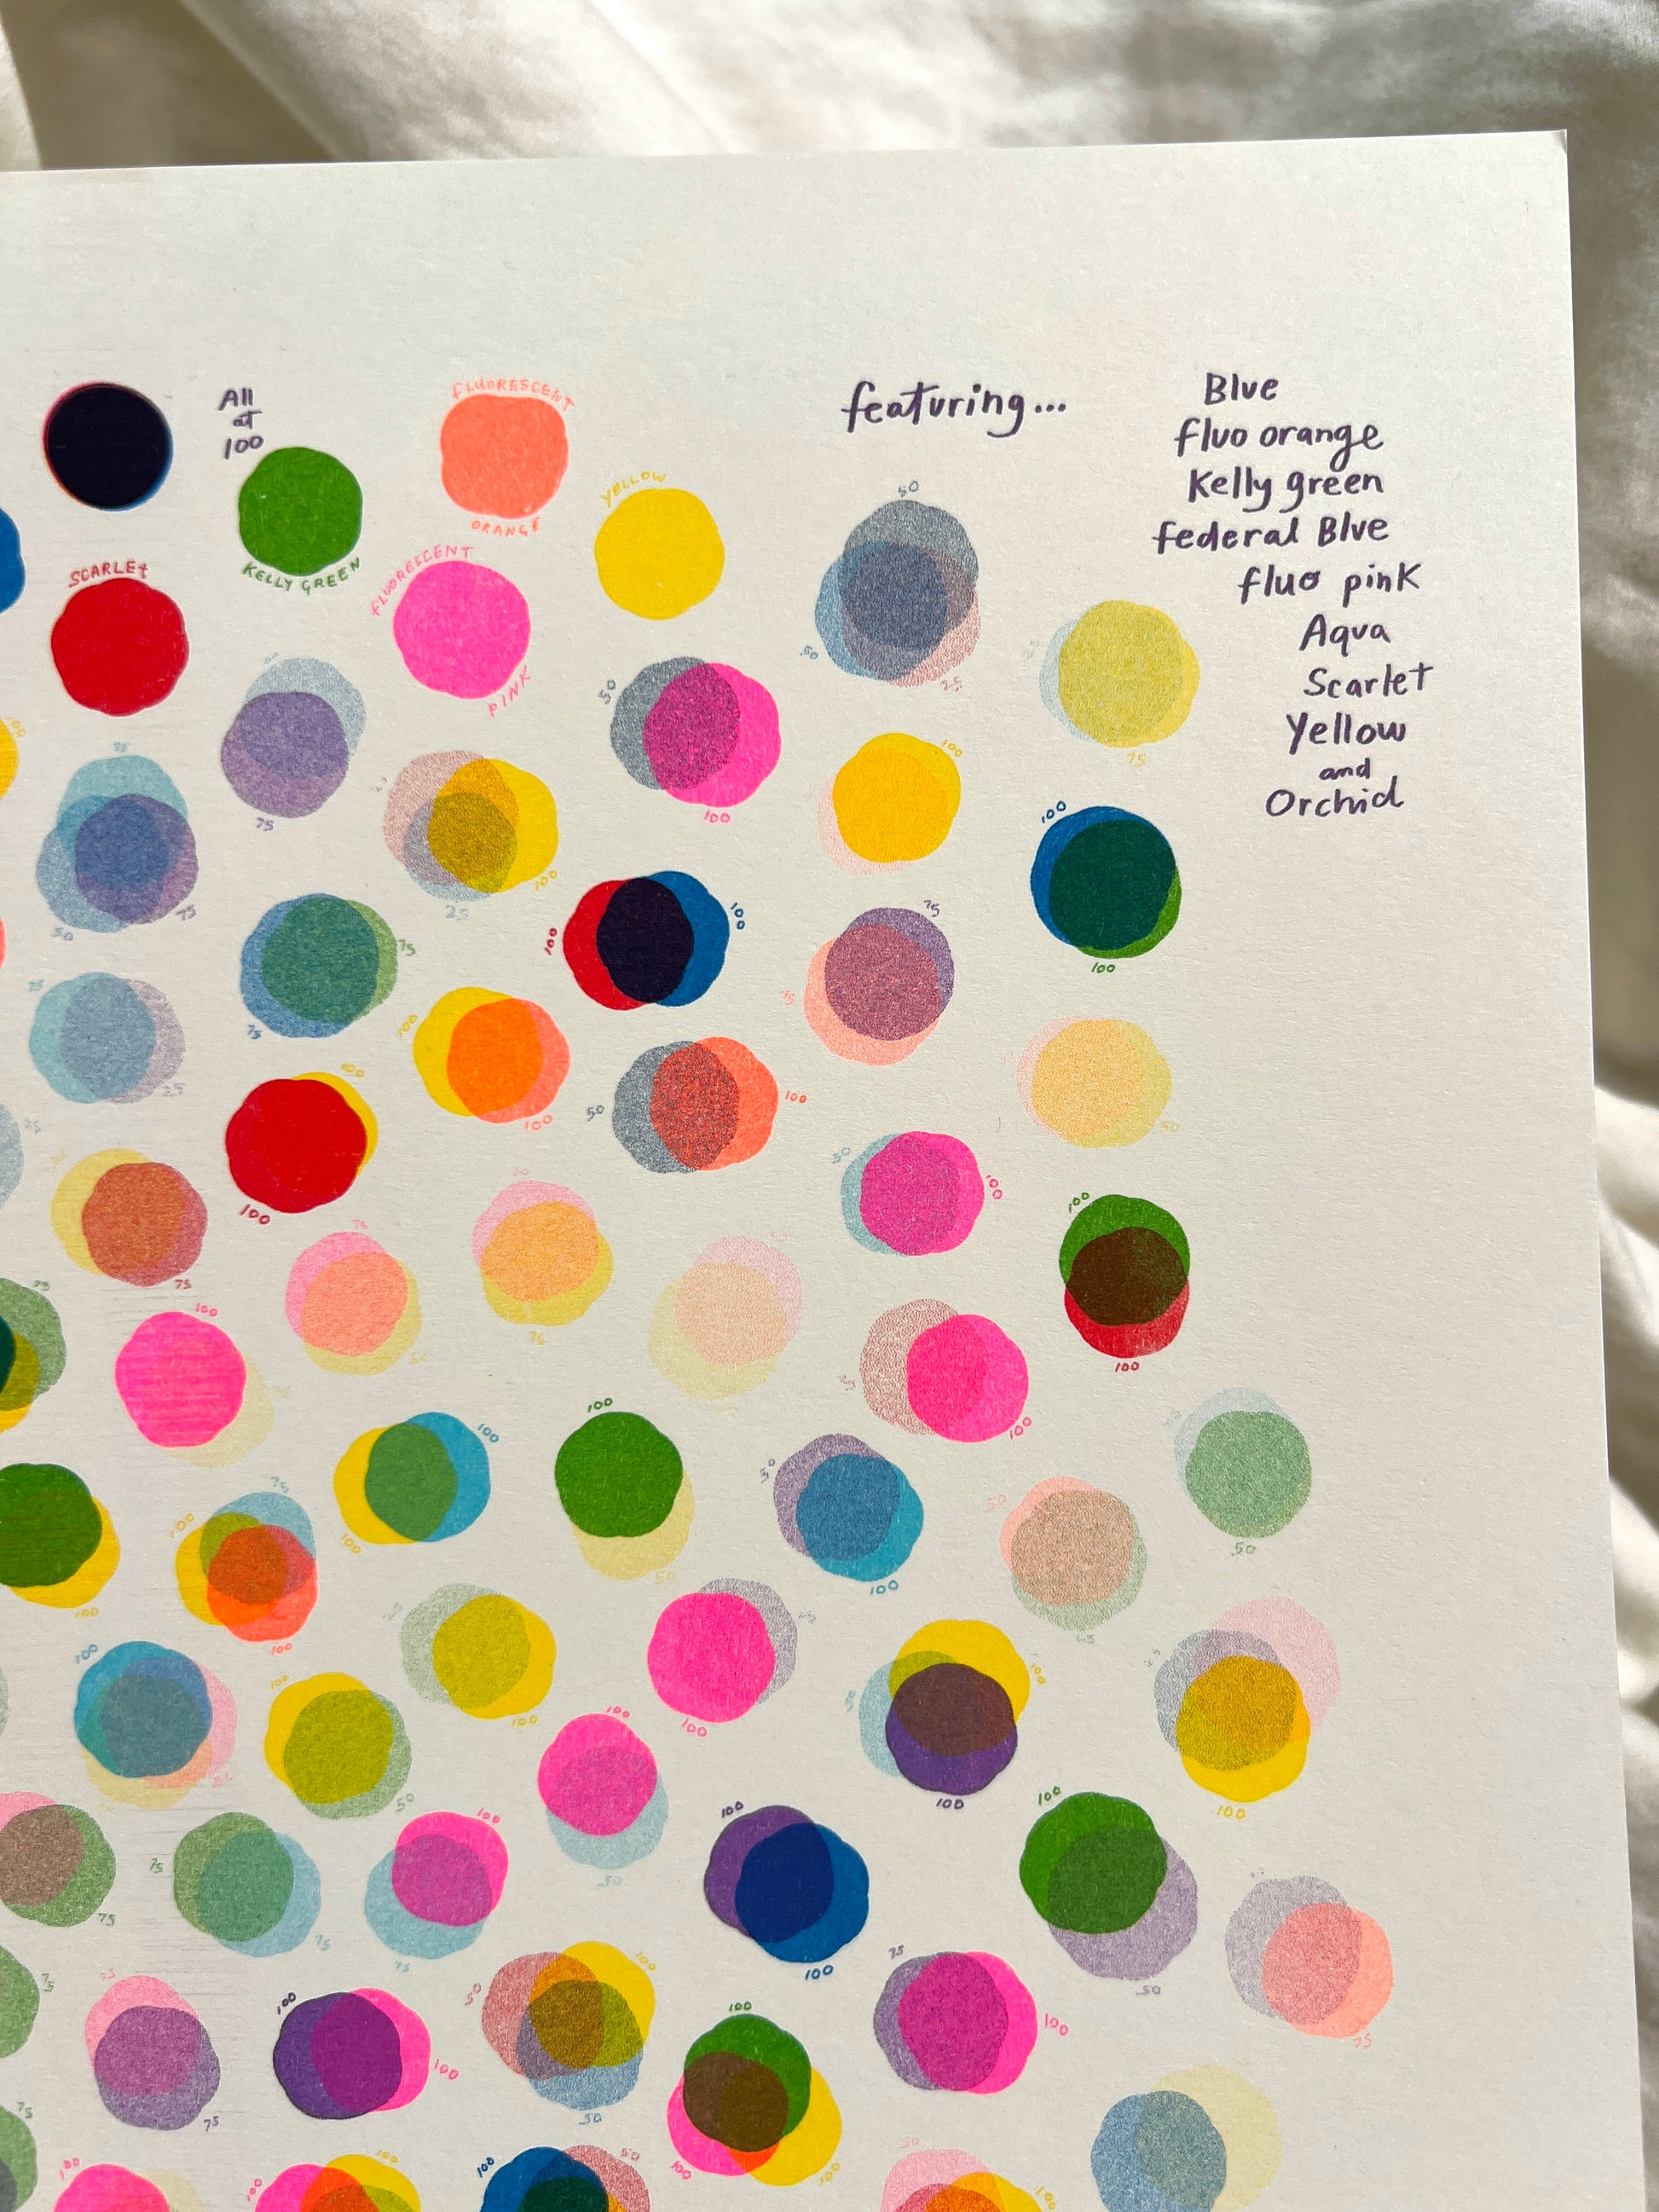 All
at
100
FLUORESCENT
ORANGE
KELLY GREEN
YELLOW
SCARLET
FLUORESCENT
PINK
featuring...
Blue
fluo orange
Kelly green
federal Blue
fluo pink
Aqua
Scarlet
Yellow
and
Orchid
50
50
25
75
50
100
100
100
75
75
75
50
100
25
100
100
75
100
75
75
75
100
100
75
25
100
100
50
100
50
50
100
100
100
75
75
75
75
100
100
25
100
100
100
100
50
50
100
50
50
100
75
100
100
100
100
100
50
100
100
100
100
50
100
100
75
75
75
50
100
100
50
75
100
75
100
75
100
100
50
100
50
100
100
100
100
100
100
100
50
50
100